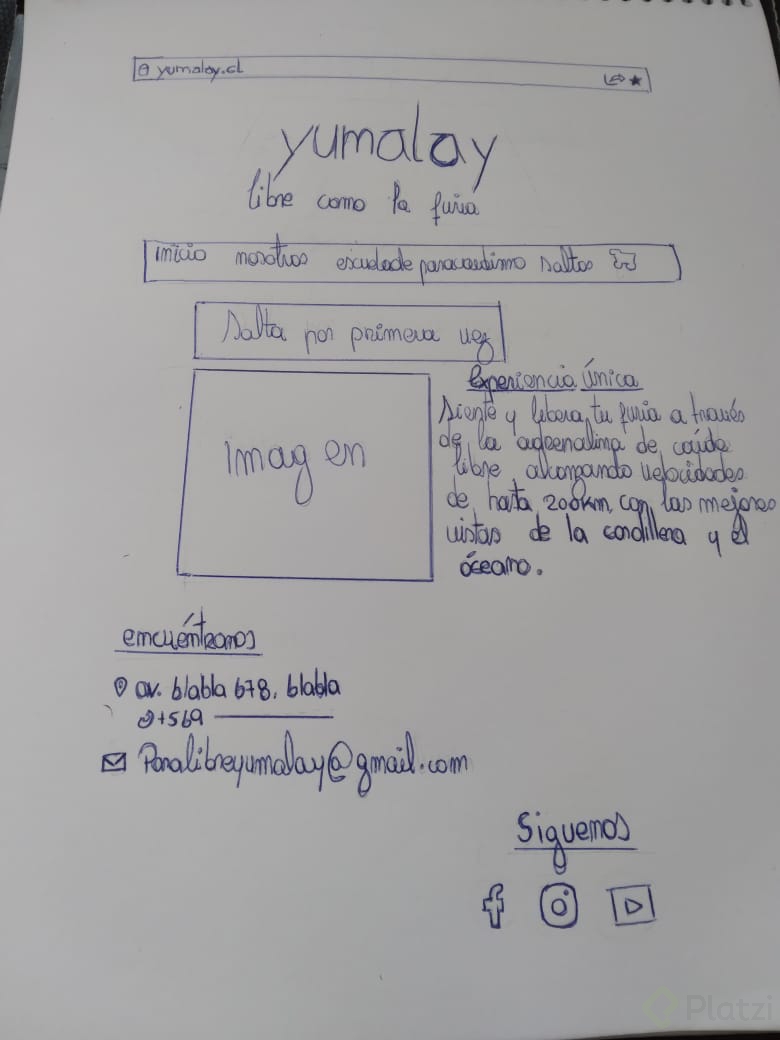 yumalay.cl
yumalay
libre como la furia
inicio nosotros escuela de paracaidismo saltos
Salta por primera vez
imagen
Experiencia única
Siente y libera tu furia a través
de la adrenalina de caída
libre, alcanzando velocidades
de hasta 200km, con las mejores
vistas de la cordillera y el
óceano.
encuéntranos
av. blabla 678, blabla
+569
Paralibreyumalay@gmail.com
Siguenos
Platzi